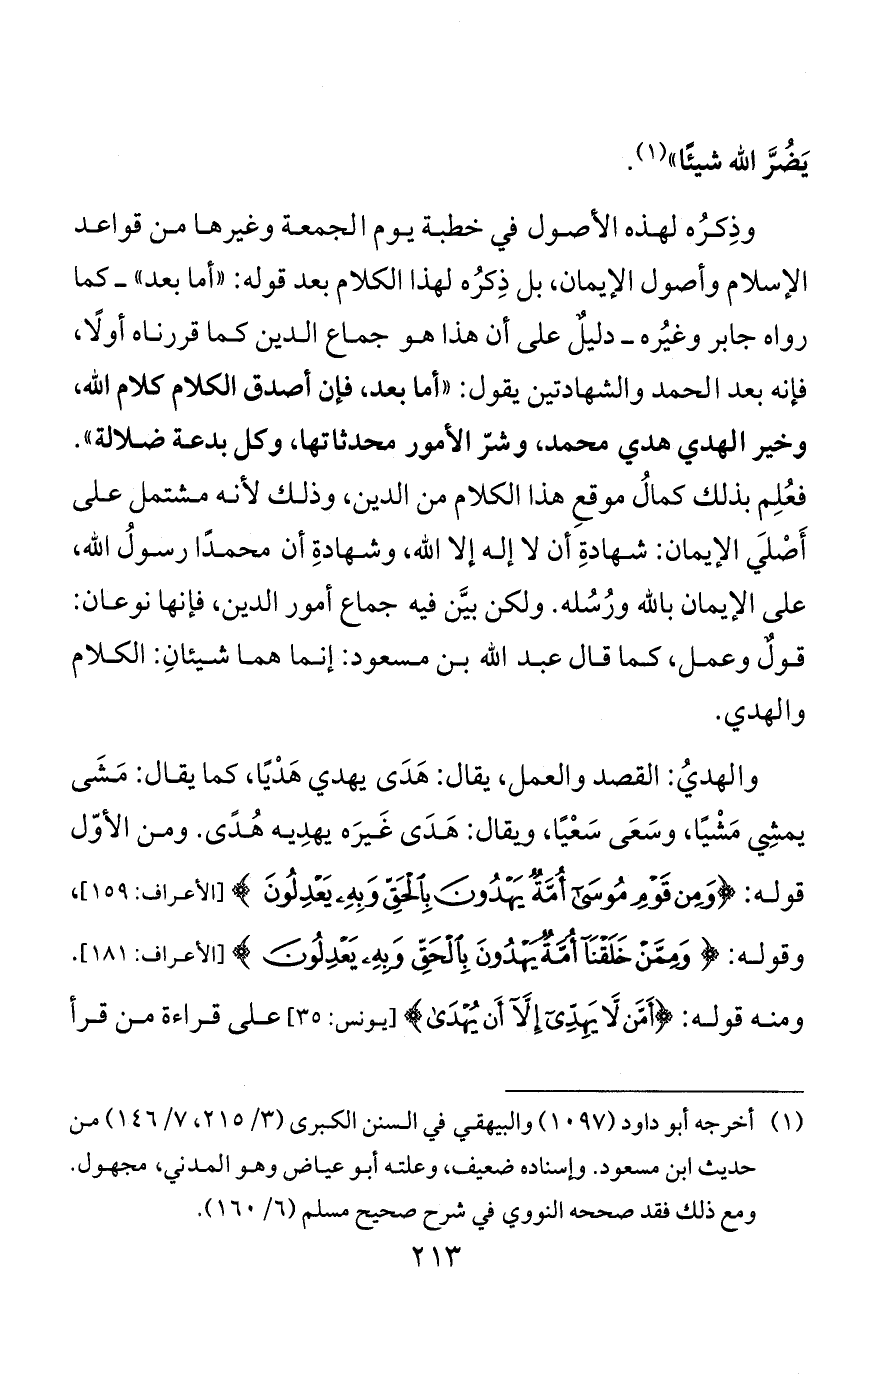 يَضُرَّ الله شيئًا»(١).
وذِكرُه لهذه الأصول في خطبة يوم الجمعة وغيرها من قواعد
الإسلام وأصول الإيمان، بل ذِكرُه لهذا الكلام بعد قوله: «أما بعد» ـ كما
رواه جابر وغيُره ـ دليلٌ على أن هذا هو جماع الدين كما قررناه أولًا،
فإنه بعد الحمد والشهادتين يقول: «أما بعد، فإن أصدق الكلام كلام الله،
وخير الهدي هدي محمد، وشرّ الأمور محدثاتها، وكل بدعة ضلالة».
فعُلِم بذلك كمالُ موقعِ هذا الكلام من الدين، وذلك لأنه مشتمل على
أَصْلَي الإيمان: شهادةِ أن لا إله إلا الله، وشهادةِ أن محمدًا رسولُ الله،
على الإيمان بالله ورُسُله. ولكن بيَّن فيه جماع أمور الدين، فإنها نوعان:
قولٌ وعمل، كما قال عبد الله بن مسعود: إنما هما شيئانِ: الكلام
والهدي.
والهديُ: القصد والعمل، يقال: هَدَى يهدي هَدْيًا، كما يقال: مَشَى
يمشِي مَشْيًا، وسَعَى سَعْيًا، ويقال: هَدَى غَيرَه يهدِيه هُدًى. ومن الأوّل
قوله: ﴿وَمِن قَوْمِ مُوسَىٰٓ أُمَّةٌ يَهْدُونَ بِٱلْحَقِّ وَبِهِۦ يَعْدِلُونَ ﴾ [الأعراف: ١٥٩]،
وقوله: ﴿ وَمِمَّنْ خَلَقْنَآ أُمَّةٌ يَهْدُونَ بِٱلْحَقِّ وَبِهِۦ يَعْدِلُونَ ﴾ [الأعراف: ١٨١].
ومنه قوله: ﴿أَمَّن لَّا يَهِدِّىٓ إِلَّآ أَن يُهْدَىٰ﴾ [يونس: ٣٥] على قراءة من قرأ
(١) أخرجه أبو داود (١٠٩٧) والبيهقي في السنن الكبرى (٣/ ٢١٥، ٧/ ١٤٦) من
حديث ابن مسعود. وإسناده ضعيف، وعلته أبو عياض وهو المدني، مجهول.
ومع ذلك فقد صححه النووي في شرح صحيح مسلم (٦/ ١٦٠).
٢١٣